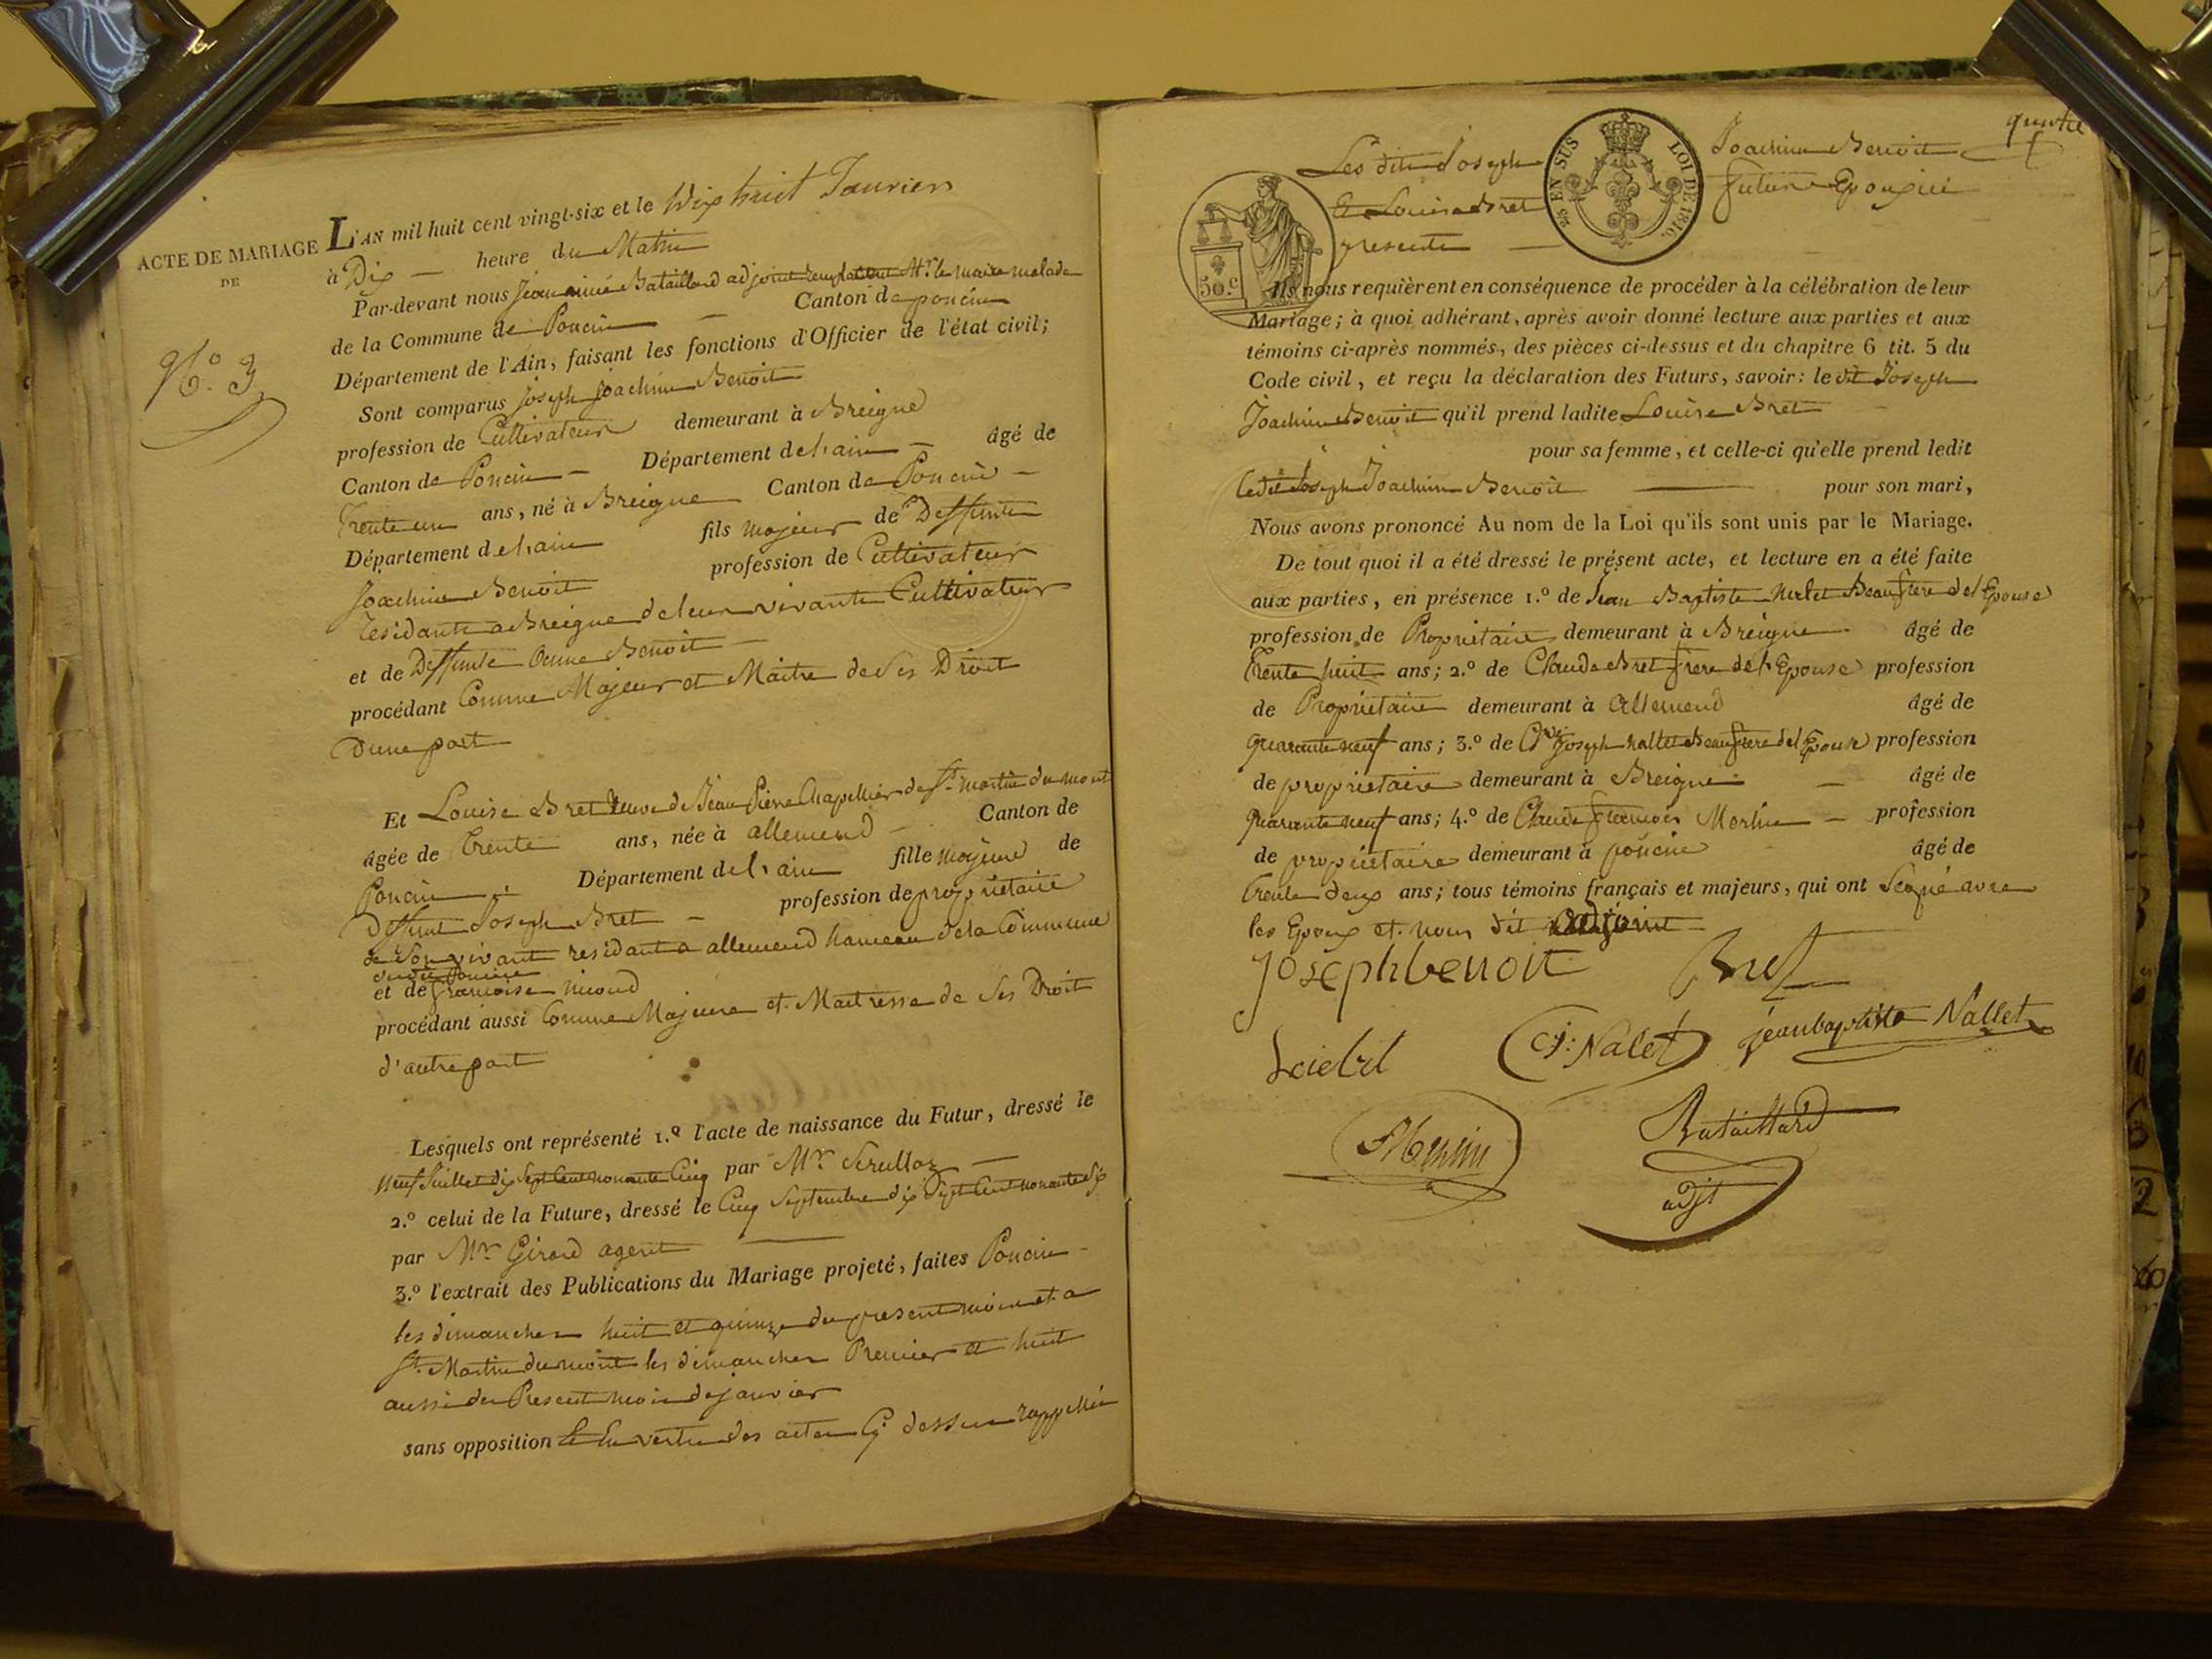 ACTE DE MARIAGE
DE
N.º 3
L'AN mil huit cent vingt-six et le Dix huit Janvier
à Dix — heure du Matin
Par-devant nous Jean aimé Bataillard adjoint remplacant Mr. le maire malade
de la Commune de Poncin — Canton de poncin
Département de l'Ain, faisant les fonctions d'Officier de l'état civil;
Sont comparus Joseph Joachim Benoit
profession de Cultivateur demeurant à Breigne
Canton de Poncin — Département de l'ain — âgé de
Trente un ans, né à Breigne Canton de Poncin —
Département de l'ain fils majeur de Deffunte
Joachim Benoit profession de Cultivateur
residante a Breigne de leur vivante Cultivateur
et de Deffunte Benoit —
procédant Comme Majeur et Maitre de Ses Droit
Dune part
Et Louise Bret Veuve de Jean Pierre Chapellier de St. martin du mont
âgée de Trente ans, née à allemend — Canton de
Poncin — Département de l'ain fille majeure de
Deffunt Joseph Bret — profession de propriétaire
de Son vivant residant a allemend hameau de la Commune
dudit Poncin
et de francoise nicoud
procédant aussi Comme Majeure et Maitresse de Ses Droit
d'autre part
Lesquels ont représenté 1.º l'acte de naissance du Futur, dressé le
neuf Juillet dix Sept Cent nonante Cinq par Mr.
2.º celui de la Future, dressé le Cinq Septembre dix Sept Cent nonante Six
par Mr. Girard agent —
3.º l'extrait des Publications du Mariage projeté, faites Poncin —
les dimanches huit et quinze du present mois et a
St. Martin du mont les dimanches Premier et huit
aussi du Present mois de janvier
sans opposition Et En vertu des actes Cy dessus rappellés
Les dits Joseph Joachim Benoit
et Louise Bret futurs Epoux ici
presente —
25 EN SUS LOI DE 1816.
50.c
Ils nous requièrent en conséquence de procéder à la célébration de leur
Mariage; à quoi adhérant, après avoir donné lecture aux parties et aux
témoins ci-après nommés, des pièces ci-dessus et du chapitre 6 tit. 5 du
Code civil, et reçu la déclaration des Futurs, savoir: le dit Joseph
Joachim Benoit qu'il prend ladite Louise Bret
pour sa femme, et celle-ci qu'elle prend ledit
ledit Joseph Joachim Benoit — pour son mari,
Nous avons prononcé Au nom de la Loi qu'ils sont unis par le Mariage.
De tout quoi il a été dressé le présent acte, et lecture en a été faite
aux parties, en présence 1.º de Jean Baptiste Beaufrere de l'Epouse
profession de Propriétaire demeurant à Breigne âgé de
Trente huit ans; 2.º de Claude Bret frere de l'Epouse profession
de Propriétaire demeurant à allemend âgé de
quarante neuf ans; 3.º de Joseph nallet Beaufrere de l'Epouse profession
de propriétaire demeurant à Breigne — âgé de
quarante neuf ans; 4.º de Claude francois Merlin — profession
de propriétaire demeurant à poncin âgé de
Trente deux ans; tous témoins français et majeurs, qui ont Signé avec
les Epoux et nous dit adjoint
Joseph benoit Bret
C.J. Nalet jeanbaptiste Nallet
Bataillard
adjt